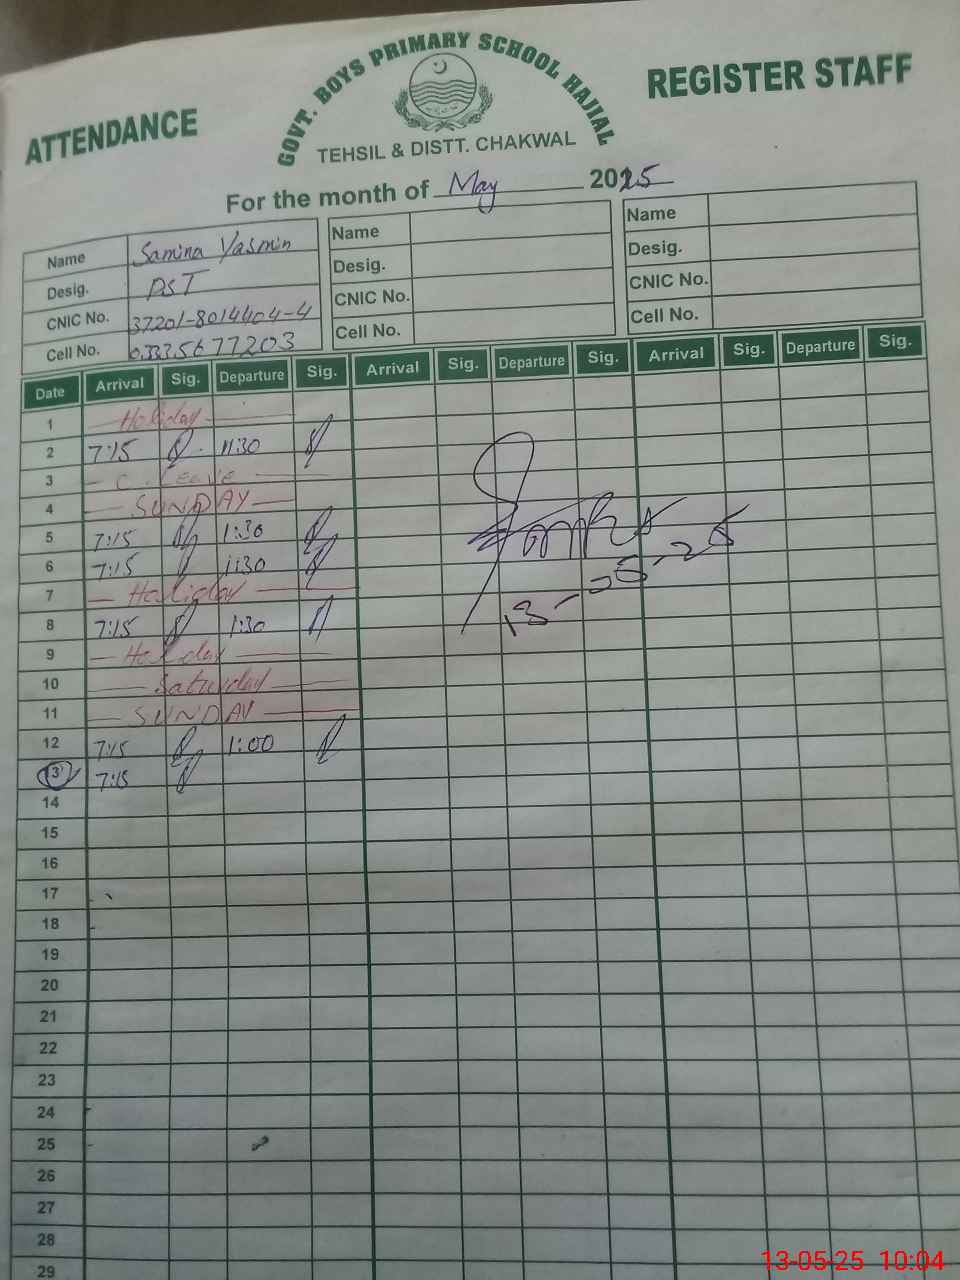 GOVT. BOYS PRIMARY SCHOOL HAJIAL
ATTENDANCE REGISTER STAFF
TEHSIL & DISTT. CHAKWAL
For the month of May 2025
Name Samina Yasmin Name Name
Desig. PST Desig. Desig.
CNIC No. 37201-8014404-4 CNIC No. CNIC No.
Cell No. 03335677203 Cell No. Cell No.
Date Arrival Sig. Departure Sig. Arrival Sig. Departure Sig. Arrival Sig. Departure Sig.
1 Holiday
2 7:15 11:30
3 C. Leave
4 SUNDAY
5 7:15 1:30
6 7:15 1:30
7 Holiday
8 7:15 1:30
13-05-25
9 Holiday
10 Saturday
11 SUNDAY
12 7:15 1:00
13 7:15
14
15
16
17
18
19
20
21
22
23
24
25
26
27
28
29
13-05-25 10:04